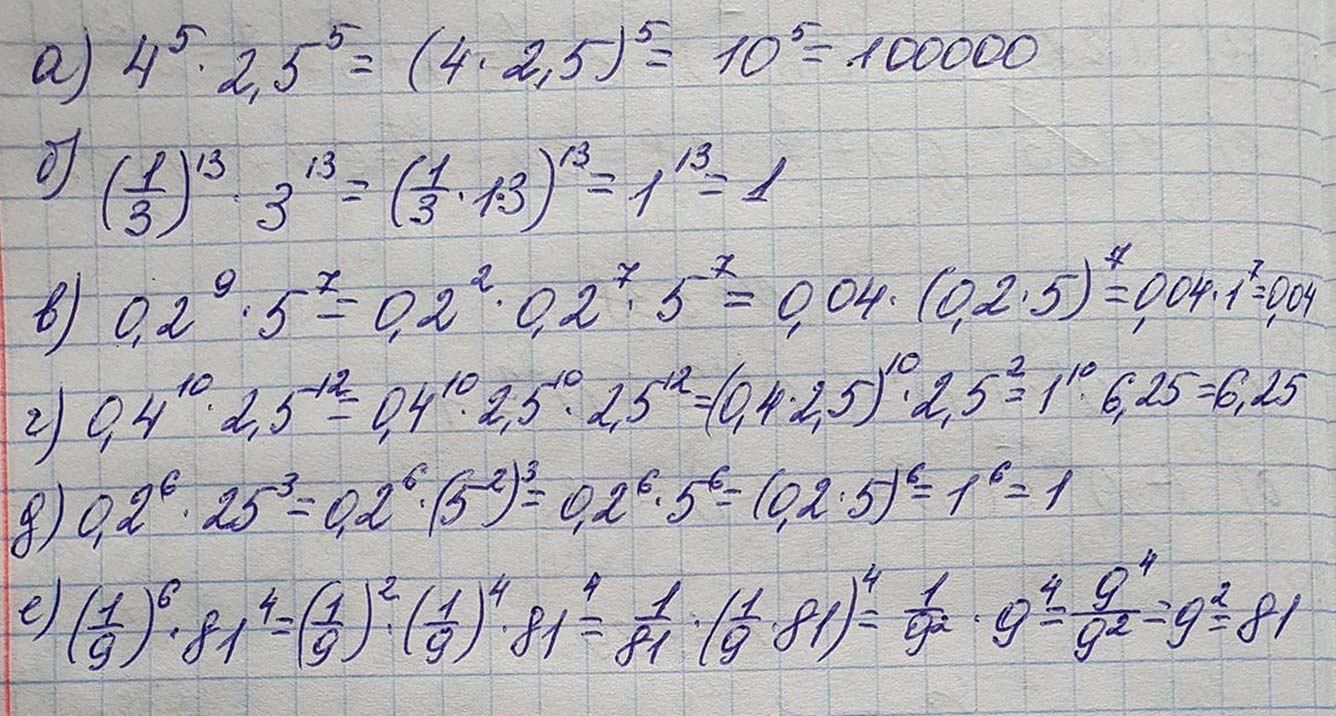 а) 4⁵ · 2,5⁵ = (4 · 2,5)⁵ = 10⁵ = 100000
б) (1/3)¹³ · 3¹³ = (1/3 · 13)¹³ = 1¹³ = 1
в) 0,2⁹ · 5⁷ = 0,2² · 0,2⁷ · 5⁷ = 0,04 · (0,2 · 5)⁷ = 0,04 · 1⁷ = 0,04
г) 0,4¹⁰ · 2,5¹² = 0,4¹⁰ · 2,5¹⁰ · 2,5¹² = (0,4 · 2,5)¹⁰ · 2,5² = 1¹⁰ · 6,25 = 6,25
д) 0,2⁶ · 25³ = 0,2⁶ · (5²)³ = 0,2⁶ · 5⁶ = (0,2 · 5)⁶ = 1⁶ = 1
е) (1/9)⁶ · 81⁴ = (1/9)² · (1/9)⁴ · 81⁴ = 1/81 · (1/9 · 81)⁴ = 1/9² · 9⁴ = 9⁴/9² = 9² = 81